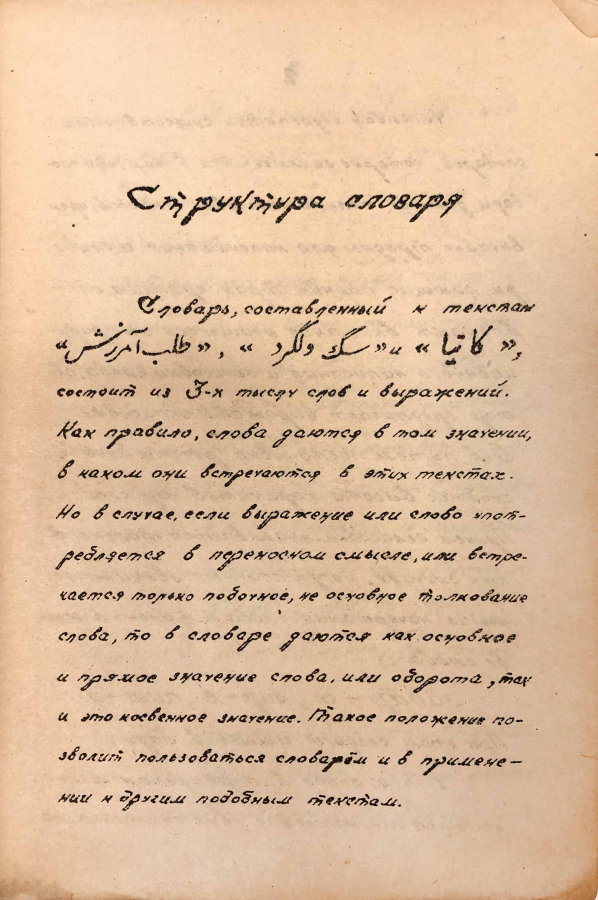 Структура словаря
Словарь, составленный к текстам
«طلب آمرزش», «سگ ولگرد» и «کاتیا»,
состоит из 3-х тысяч слов и выражений.
Как правило, слова даются в том значении,
в каком они встречаются в этих текстах.
Но в случае, если выражение или слово упот-
ребляется в переносном смысле, или встре-
чается только побочное, не основное толкование
слова, то в словаре даются как основное
и прямое значение слова, или оборота, так
и это косвенное значение. Такое положение по-
зволит пользоваться словарём и в примене-
нии к другим подобным текстам.